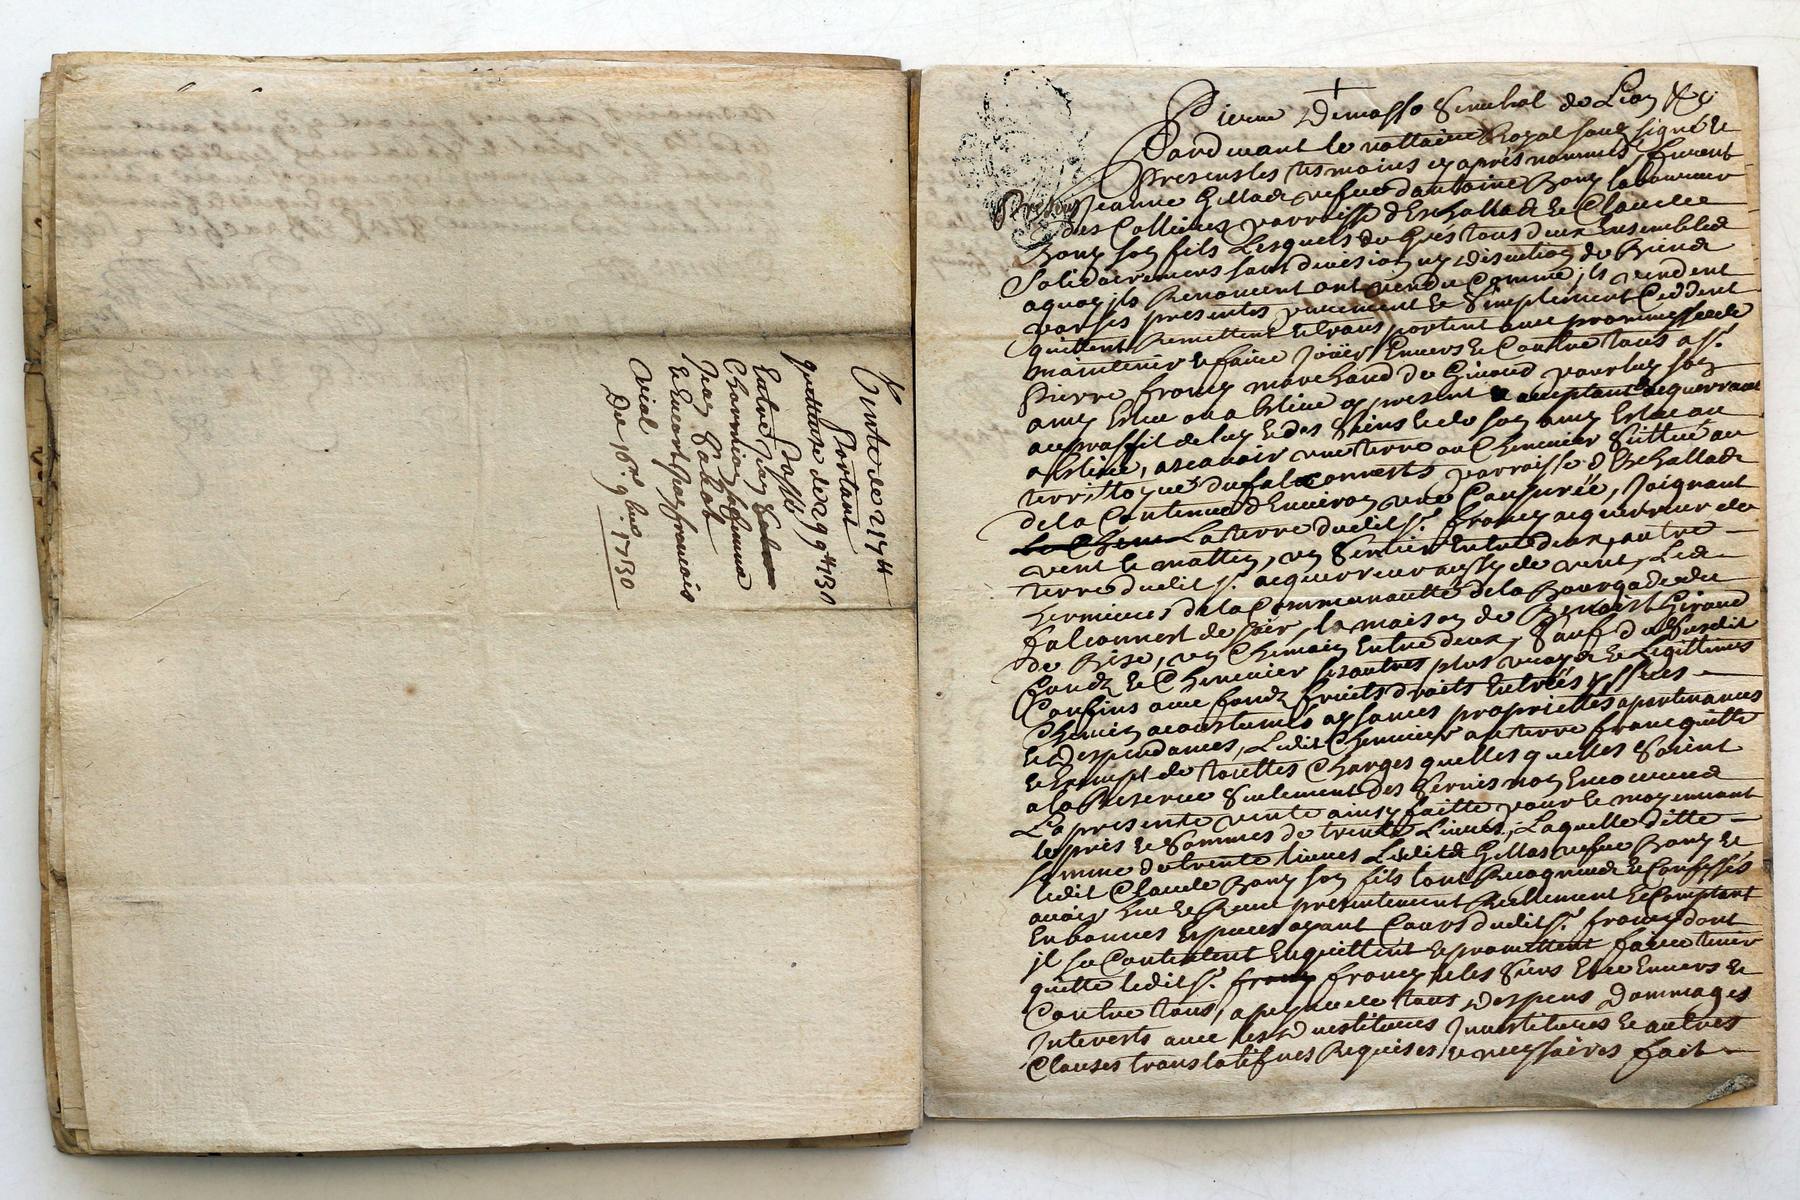 Vente de 21 ₶
Portant
quittance de 29 ₶ 13 d
passée
Entre Jean
Jean
Et Encor françois
Vial
Du 16e 9bre 1730
Pardevant le nottaire Royal souz signé et
presents les tesmoins cy après nommés, furent
presents Jeanne Gillad vefve d'antoine Bony laboureur
des Collieres parroisse d'Eschallad et Claude
Bony son fils Lesquels de Grés tous deux Ensembled
Solidairement sans division ny discution de Biend
aquoy ils Renoncent ont vendu Comme ils vendent
par ses presentes purement et simplement Ceddent
quittent Remettent et transportent avec promesse de
maintenir et faire Joüir Envers et Contre tous a Sr.
Pierre françy marchand de Givord pour luy son
amy Esleu ou a Eslire cy present acceptant acquerrant
au proffit de luy et des siens et de son amy Esleu ou
a Eslire, ascavoir une terre ou Chenevier Scittué au
terri toyre du falconnerts parroisse d'Eschallad
de la Contenue d'Environ une Coupurée, Joignant
La terre dudit Sr. françy acquerreur de
vent et mattin, un sentier Entre deux, autre
terre dudit Sr. acquerreur aussy de vent, Led
hermieres de la Communautté de la Bourgade du
falconnert de soir, la maison de Benoist Giraud
de Bize, un Chemain Entre deux, sauf du susdit
fondz et Chenevier ses autres plus vrays et Legittimes
Confins avec fondz fruits droits Entrées yssues
Chemins acoustumés aysances proprietés apartenances
et despendances, Ledit Chenevier ou terre franc quitte
et Exempt de touttes Charges quelles quelles soient
a la Reserve seulement des servis non Encourus
La presente vente ainsy faitte pour et moyennant
le pris et sommes de trente Livres, Laquelle ditte
somme de trente livres Ladite Gillad vefve Bony et
ledit Claude Bony son fils tous Recognus et Confessés
avoir heu et Receu presentement Reellement et Comptant
En bonnes Especes ayant Cours dudit Sr. françy dont
il se Contentent Enquittent et promettent faire tenir
quitte ledit Sr. françy et les siens Et ce Envers et
Contre tous, a peyne de tous Despens Dommages
Interests avec les Devestitures Investitures et autres
Clauses translatifves Requises et necessaires fait